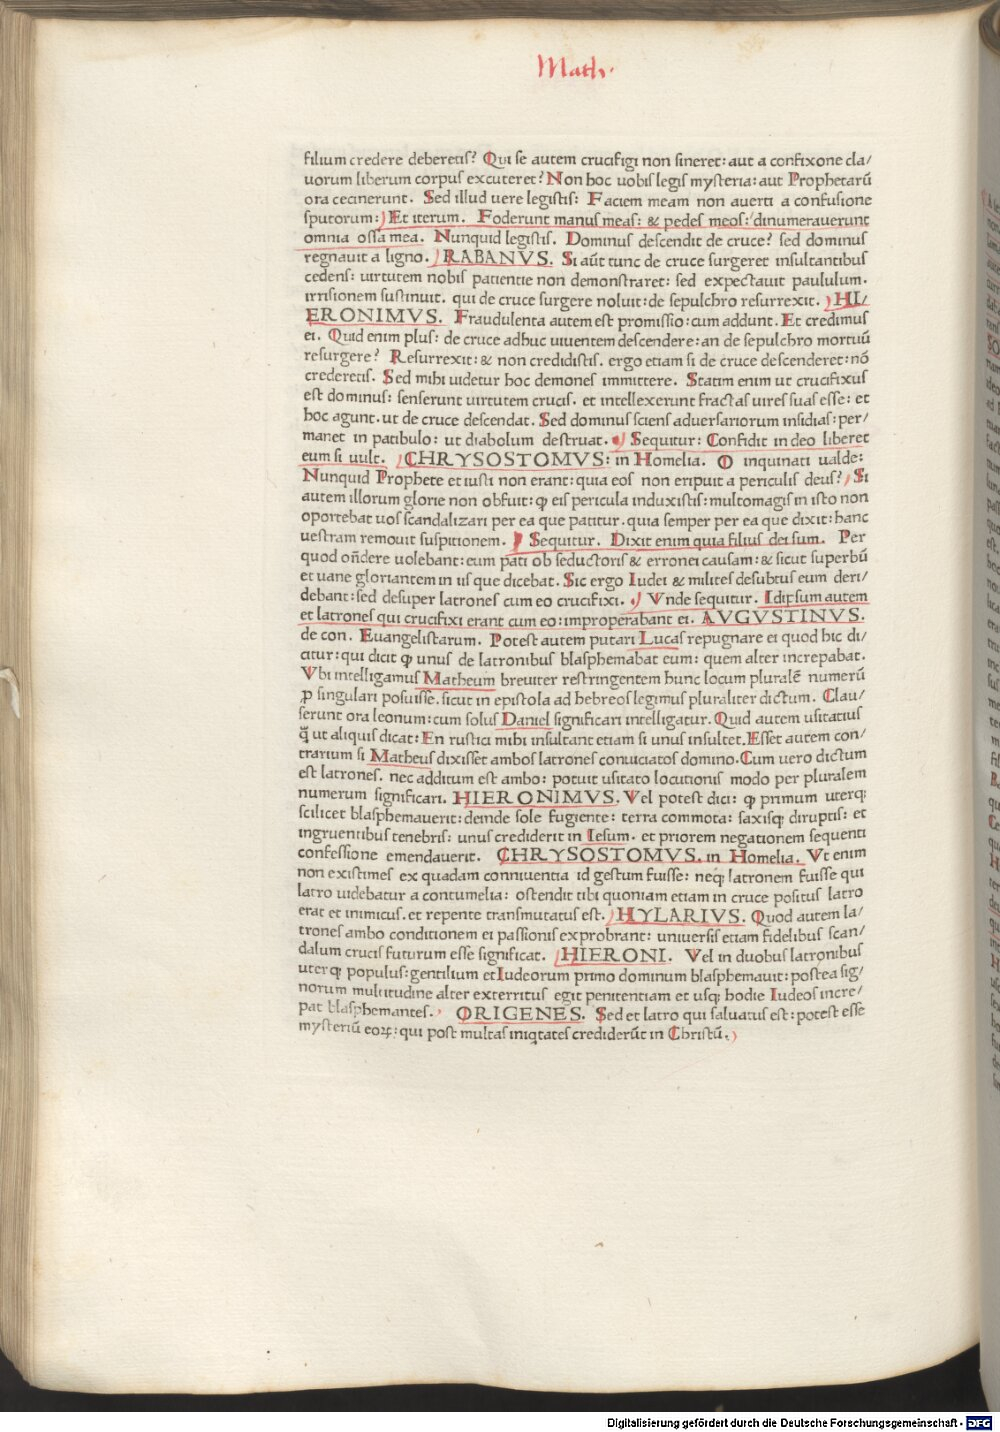 Math.
filium credere deberetis? Qui se autem crucifigi non sineret: aut a confixone cla/
uorum liberum corpus excuteret? Non hoc uobis legis mysteria: aut Prophetarū
ora cecinerunt. Sed illud uere legistis: Faciem meam non auerti a confusione
sputorum: Et iterum. Foderunt manus meas: & pedes meos: dinumerauerunt
omnia ossa mea. Nunquid legistis. Dominus descendit de cruce? sed dominus
regnauit a ligno. RABANVS. Si aūt tunc de cruce surgeret insultantibus
cedens: uirtutem nobis patientie non demonstraret: sed expectauit paululum.
irrisionem sustinuit. qui de cruce surgere noluit: de sepulchro resurrexit. HI/
ERONIMVS. Fraudulenta autem est promissio: cum addunt. Et credimus
ei. Quid enim plus: de cruce adhuc uiuentem descendere: an de sepulchro mortuū
resurgere? Resurrexit: & non credidistis. ergo etiam si de cruce descenderet: nō
crederetis. Sed mihi uidetur hoc demones immittere. Statim enim ut crucifixus
est dominus: senserunt uirtutem crucis. et intellexerunt fractas uires suas esse: et
hoc agunt. ut de cruce descendat. Sed dominus sciens aduersariorum insidias: per/
manet in patibulo: ut diabolum destruat. Sequitur: Confidit in deo liberet
eum si uult. CHRYSOSTOMVS: in Homelia. O inquinati ualde:
Nunquid Prophete et iusti non erant: quia eos non eripuit a periculis deus? Si
autem illorum glorie non obfuit: ꝙ eis pericula induxistis: multomagis in isto non
oportebat uos scandalizari per ea que patitur. quia semper per ea que dixit: hanc
uestram remouit suspitionem. Sequitur. Dixit enim quia filius dei sum. Per
quod oñdere uolebant: eum pati ob seductoris & erronei causam: & sicut superbū
et uane gloriantem in iis que dicebat. Sic ergo Iudei & milites desubtus eum deri/
debant: sed desuper latrones cum eo crucifixi. Vnde sequitur. Idipsum autem
et latrones qui crucifixi erant cum eo: improperabant ei. AVGVSTINVS.
de con. Euangelistarum. Potest autem putari Lucas repugnare ei quod hic di/
citur: qui dicit ꝙ unus de latronibus blasphemabat eum: quem alter increpabat.
Vbi intelligamus Matheum breuiter restringentem hunc locum pluralē numerū
ꝓ singulari posuisse. sicut in epistola ad hebreos legimus pluraliter dictum. Clau/
serunt ora leonum: cum solus Daniel significari intelligatur. Quid autem usitatius
q̄ ut aliquis dicat: En rustici mihi insultant etiam si unus insultet. Esset autem con/
trarium si Matheus dixisset ambos latrones conuiciatos domino. Cum uero dictum
est latrones. nec additum est ambo: potuit usitato locutionis modo per pluralem
numerum significari. HIERONIMVS. Vel potest dici: ꝙ primum uterq;
scilicet blasphemauerit: deinde sole fugiente: terra commota: saxisq; diruptis: et
ingruentibus tenebris: unus crediderit in Iesum. et priorem negationem sequenti
confessione emendauerit. CHRYSOSTOMVS. in Homelia. Vt enim
non existimes ex quadam conniuentia id gestum fuisse: neq; latronem fuisse qui
latro uidebatur a contumelia: ostendit tibi quoniam etiam in cruce positus latro
erat et inimicus. et repente transmutatus est. HYLARIVS. Quod autem la/
trones ambo conditionem ei passionis exprobrant: uniuersis etiam fidelibus scan/
dalum crucis futurum esse significat. HIERONI. Vel in duobus latronibus
uterq; populus: gentilium et Iudeorum primo dominum blasphemauit: postea sig/
norum multitudine alter exterritus egit penitentiam et usq; hodie Iudeos incre/
pat blasphemantes. ORIGENES. Sed et latro qui saluatus est: potest esse
mysteriū eoꝝ: qui post multas iniq̇tates crediderūt in Christū.
Digitalisierung gefördert durch die Deutsche Forschungsgemeinschaft - DFG